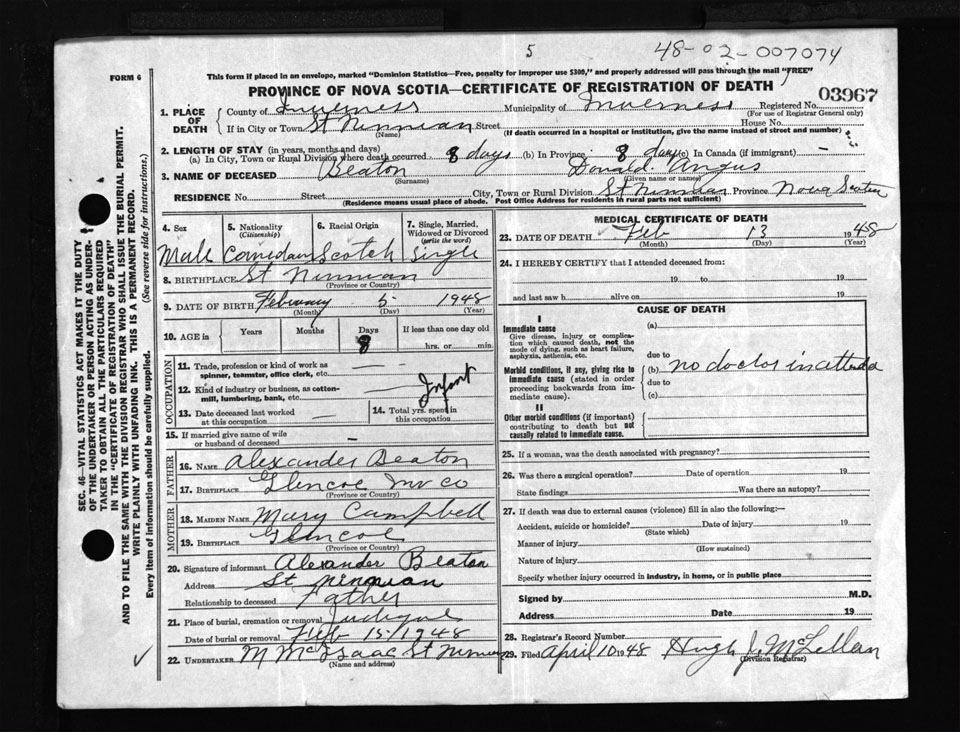 5 48-02-007074
FORM 6
This form if placed in an envelope, marked "Dominion Statistics—Free, penalty for improper use $300," and properly addressed will pass through the mail "FREE"
PROVINCE OF NOVA SCOTIA—CERTIFICATE OF REGISTRATION OF DEATH
03967
1. PLACE OF DEATH County of Inverness Municipality of Inverness Registered No.
(For use of Registrar General only)
If in City or Town St Ninnian Street House No.
(Name) (If death occurred in a hospital or institution, give the name instead of street and number)
2. LENGTH OF STAY (in years, months and days)
(a) In City, Town or Rural Division where death occurred 8 days (b) In Province 8 days (c) In Canada (if immigrant) —
3. NAME OF DECEASED Beaton Donald Angus
(Surname) (Given name or names)
RESIDENCE No. Street City, Town or Rural Division St Ninnian Province Nova Scotia
(Residence means usual place of abode. Post Office Address for residents in rural parts not sufficient)
SEC. 46—VITAL STATISTICS ACT MAKES IT THE DUTY
OF THE UNDERTAKER OR PERSON ACTING AS UNDER-
TAKER TO OBTAIN ALL THE PARTICULARS REQUIRED
IN THE "CERTIFICATE OF REGISTRATION OF DEATH"
AND TO FILE THE SAME WITH THE DIVISION REGISTRAR WHO SHALL ISSUE THE BURIAL PERMIT.
WRITE PLAINLY WITH UNFADING INK. THIS IS A PERMANENT RECORD.
Every item of information should be carefully supplied. (See reverse side for instructions.)
4. Sex 5. Nationality (Citizenship) 6. Racial Origin 7. Single, Married, Widowed or Divorced (write the word)
Male Canadian Scotch Single
8. BIRTHPLACE St Ninnian
(Province or Country)
9. DATE OF BIRTH February 5 1948
(Month) (Day) (Year)
10. AGE in Years Months Days If less than one day old
8 hrs. or min.
OCCUPATION
11. Trade, profession or kind of work as spinner, teamster, office clerk, etc. —
12. Kind of industry or business, as cotton-mill, lumbering, bank, etc. Infant
13. Date deceased last worked at this occupation —
14. Total yrs. spent in this occupation
15. If married give name of wife or husband of deceased —
FATHER
16. NAME Alexander Beaton
17. BIRTHPLACE Glencoe Inv co
(Province or Country)
MOTHER
18. MAIDEN NAME Mary Campbell
19. BIRTHPLACE Glencoe
(Province or Country)
20. Signature of informant Alexander Beaton
Address St Ninnian
Relationship to deceased Father
21. Place of burial, cremation or removal Judique
Date of burial or removal Feb 15/1948
22. UNDERTAKER M McIsaac St Ninnian
(Name and address)
MEDICAL CERTIFICATE OF DEATH
23. DATE OF DEATH Feb 13 1948
(Month) (Day) (Year)
24. I HEREBY CERTIFY that I attended deceased from:
19 to 19
and last saw h alive on 19
CAUSE OF DEATH
I
Immediate cause
Give disease, injury or complication which caused death, not the mode of dying, such as heart failure, asphyxia, asthenia, etc.
(a)
due to
Morbid conditions, if any, giving rise to immediate cause (stated in order proceeding backwards from immediate cause).
(b) no doctor in attendance
due to
(c)
II
Other morbid conditions (if important) contributing to death but not causally related to immediate cause.
25. If a woman, was the death associated with pregnancy?
26. Was there a surgical operation? Date of operation 19
State findings Was there an autopsy?
27. If death was due to external causes (violence) fill in also the following:—
Accident, suicide or homicide? Date of injury 19
(State which)
Manner of injury
(How sustained)
Nature of injury
Specify whether injury occurred in industry, in home, or in public place
Signed by M.D.
Address Date 19
28. Registrar's Record Number
29. Filed April 10 1948 Hugh J. McLellan
(Division Registrar)